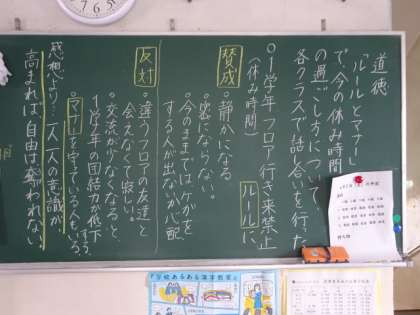 道徳
「ルールとマナー」
で、今の休み時間
の過ごし方について
各クラスで話し合いを行った
○1学年 フロア行き来禁止
(休み時間)
ルールに
賛成
・静かになる
・密にならない。
・今のままではケガを
する人が出ないか心配
反対
・違うフロアの友達と
会えなくて寂しい。
・交流が少なくなると、
1学年の団結力が低下する。
・マナーを守っている人もいる。
感想より…一人一人の意識が
高まれば、自由は奪われない。
学校あるある漢字教室